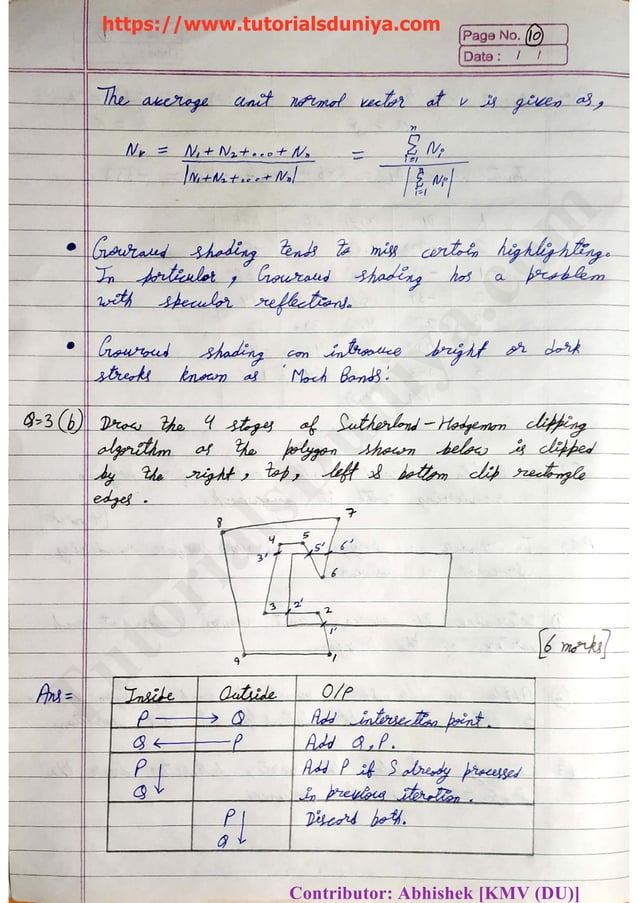 https://www.tutorialsduniya.com
Page No. 10
Date : / /
The average unit normal vector at v is given as,
Nv = N1 + N2 + ... + Nn / |N1 + N2 + ... + Nn| = n Σ i=1 Ni / | n Σ i=1 Ni |
• Gouraud shading tends to miss certain highlighting.
In particular, Gouraud shading has a problem
with specular reflections.
• Gouraud shading can introduce bright or dark
streaks known as 'Mach Bands'.
Q=3 (b) Draw the 4 stages of Sutherland-Hodgeman clipping
algorithm as the polygon shown below is clipped
by the right, top, left & bottom clip rectangle
edges.
8 7
4 5
3' 5' 6'
6
3 2' 2
1'
9 1
[6 marks]
Ans= Inside Outside O/P
P → Q Add intersection point.
Q ← P Add Q, P.
P ↓ Add P if S already processed
Q in previous iteration.
P ↓ Discard both.
Q
Tutorialsduniya.com
Contributor: Abhishek [KMV (DU)]